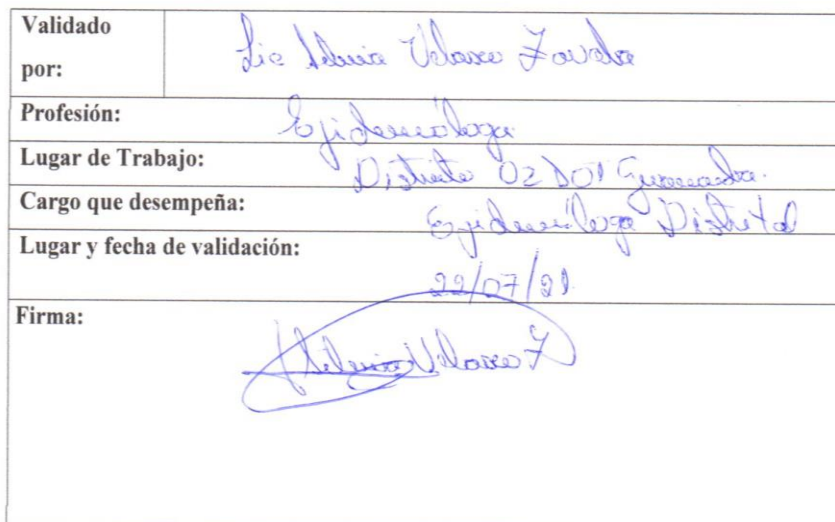 Validado
por:
Lic Silvia Velasco Zavala
Profesión:
Epidemióloga
Lugar de Trabajo:
Distrito 02D01 Guaranda.
Cargo que desempeña:
Epidemióloga Distrital
Lugar y fecha de validación:
22/07/21
Firma:
Velasco Z